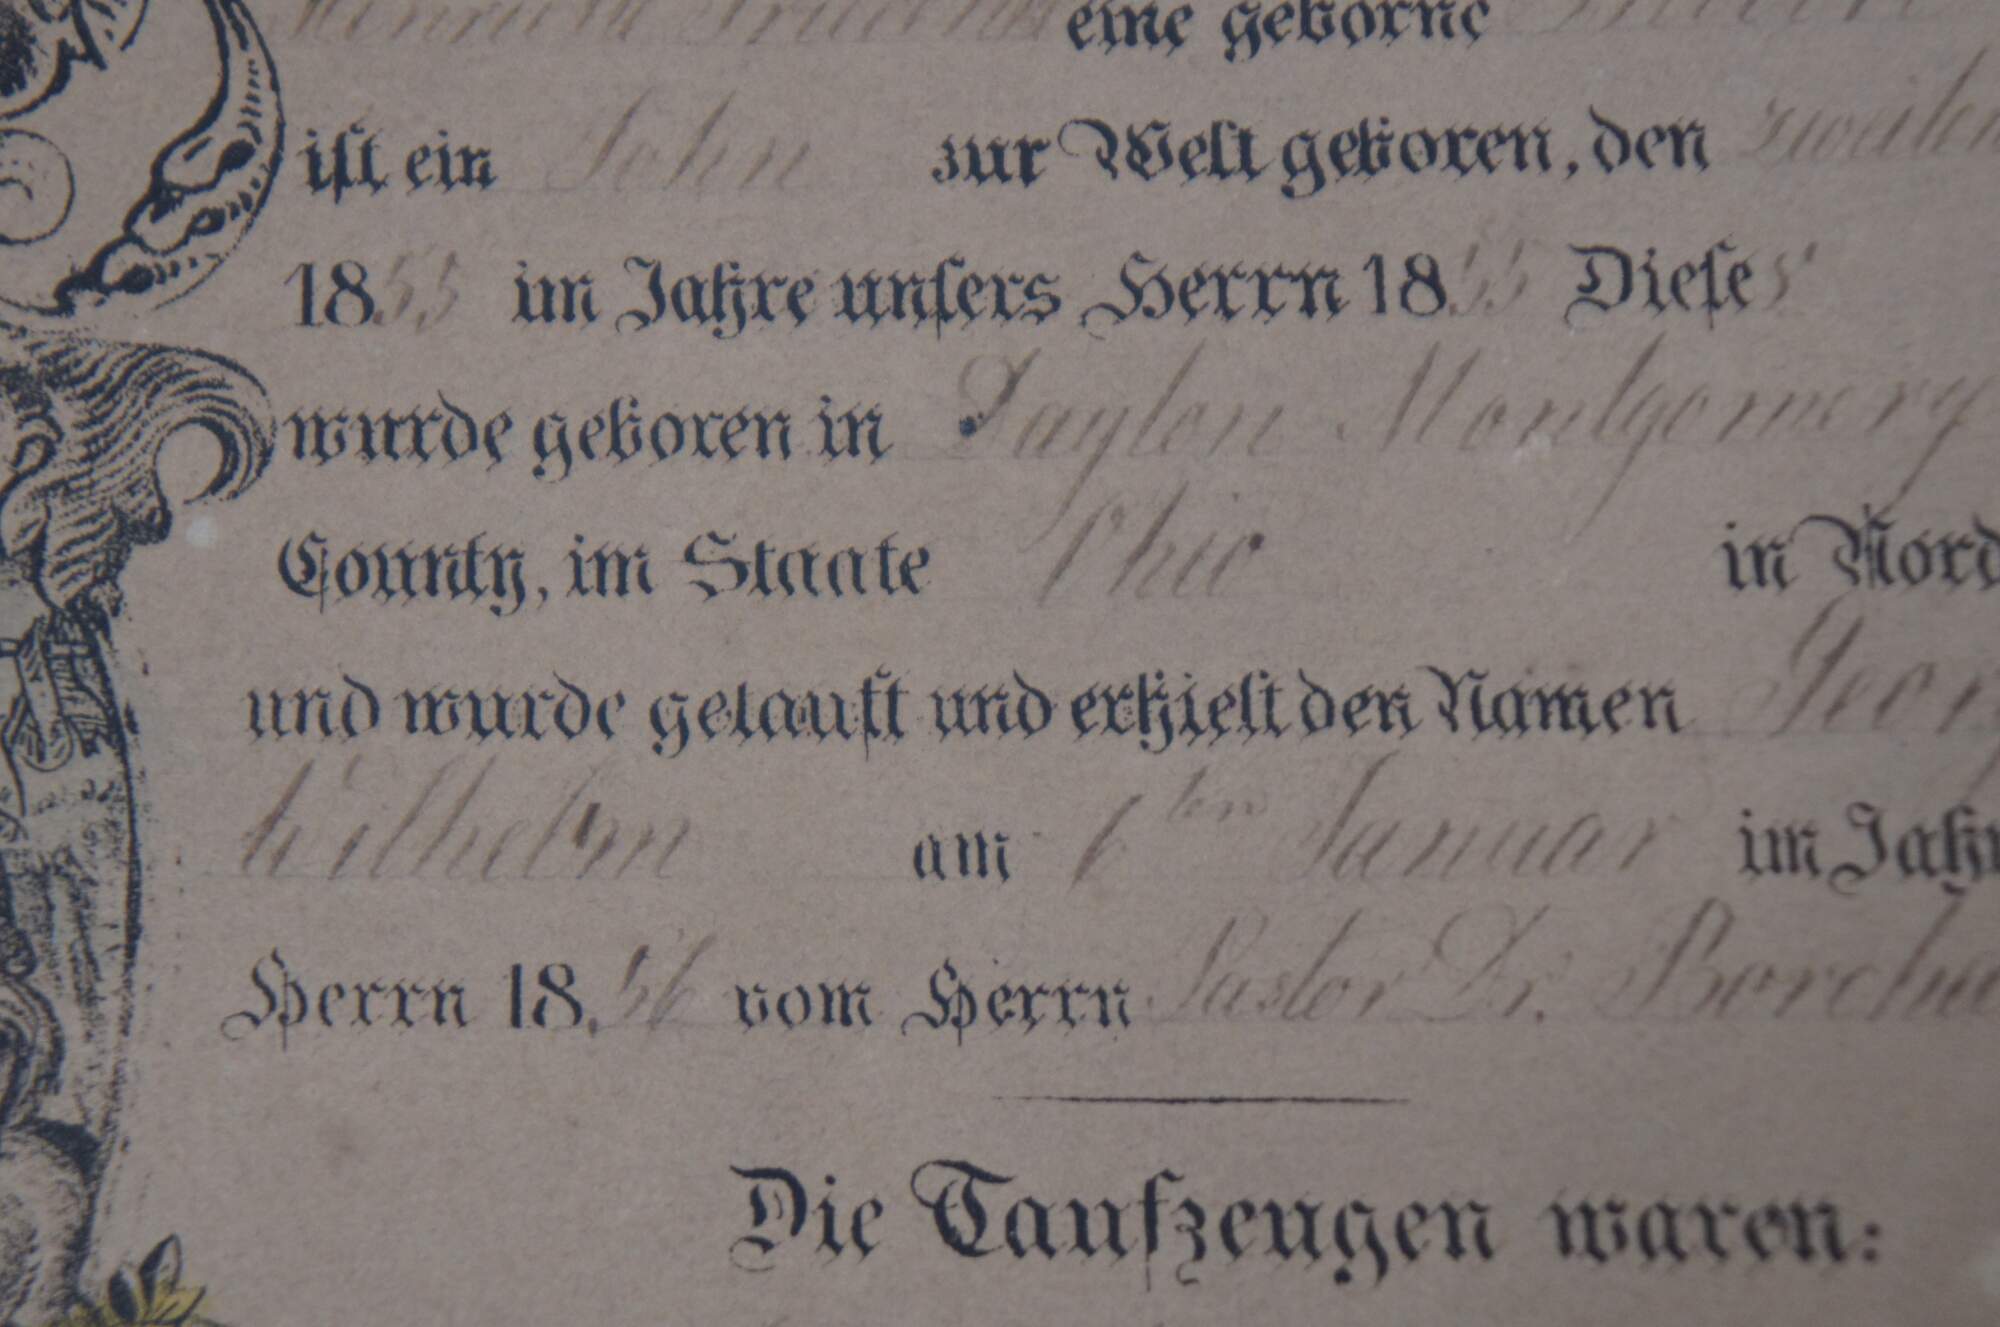 eine geborne
ist ein Sohn zur Welt geboren, den zweiten
1855 im Jahre unsers Herrn 1855 Dieses
wurde geboren in Dayton Montgomery
County, im Staate Ohio in Nord
und wurde getauft und erhielt den Namen Georg
Wilhelm am 1ten Januar im Jahr
Herrn 1856 vom Herrn Pastor Dr. Borchu
Die Taufzeugen waren: